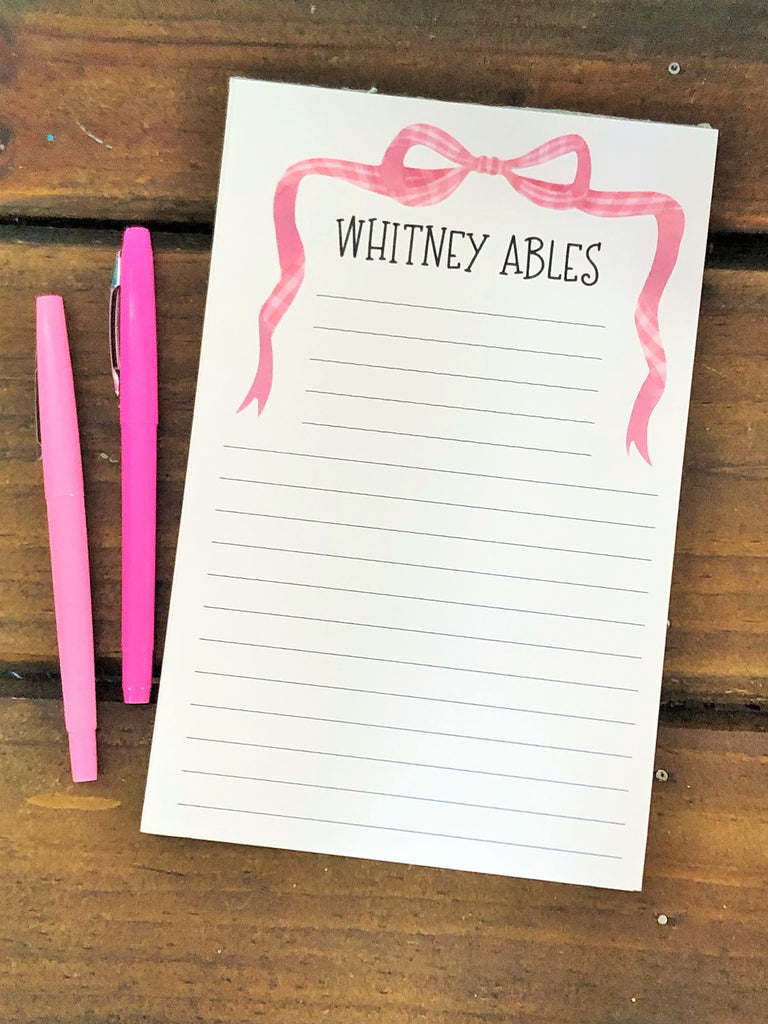 WHITNEY ABLES